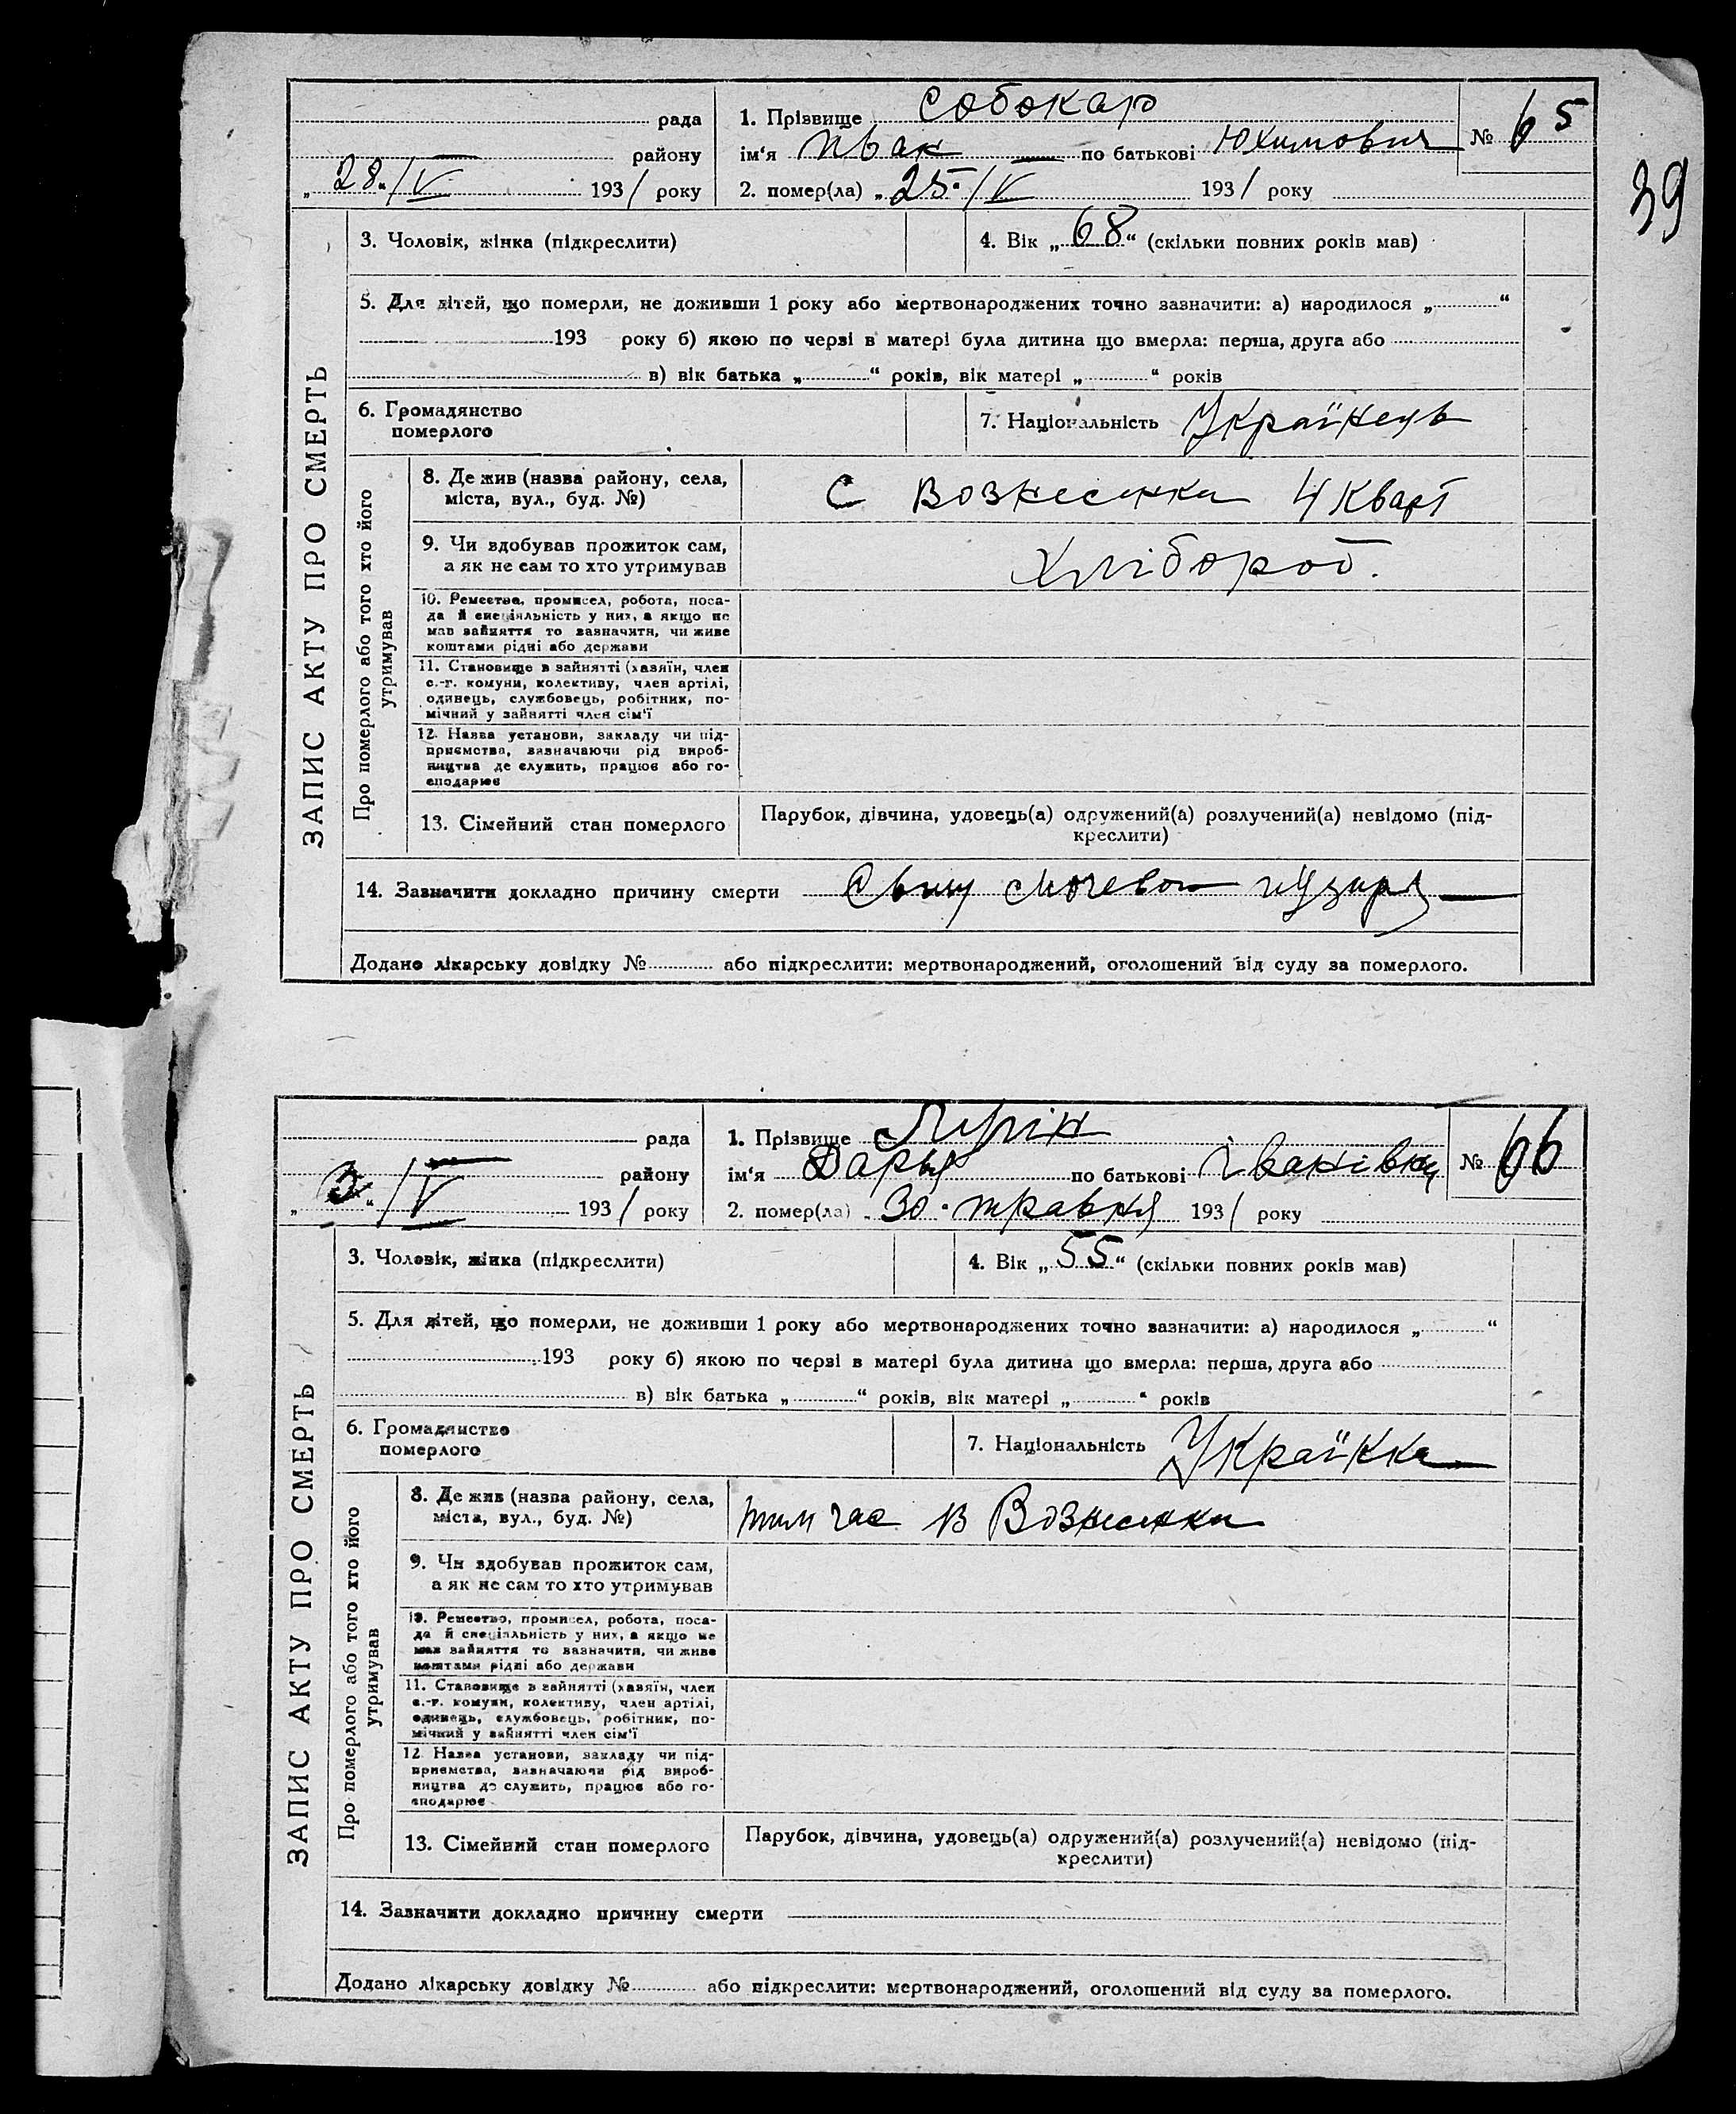 39
ЗАПИС АКТУ ПРО СМЕРТЬ
рада
району
„28“/V 1931 року
1. Прізвище Собокар
ім‘я Иван по батькові Юхимович
№ 65
2. помер(ла) „25“/V 1931 року
3. Чоловік, жінка (підкреслити)
4. Вік „68“ (скільки повних років мав)
5. Для дітей, що померли, не доживши 1 року або мертвонароджених точно зазначити: а) народилося „ “
193 року б) якою по черзі в матері була дитина що вмерла: перша, друга або
в) вік батька „ “ років, вік матері „ “ років
6. Громадянство
померлого
7. Національність Українець
Про померлого або того хто його
утримував
8. Де жив (назва району, села,
міста, вул., буд. №)
С Вознесенки 4 Кварт
9. Чи вдобував прожиток сам,
а як не сам то хто утримував
Хлібороб.
10. Ремество, промисел, робота, поса-
да й спеціяльність у них, а якщо не
мав зайняття то зазначити, чи живе
коштами рідні або держави
11. Становище в зайнятті (хазяїн, член
с.-г. комуни, колективу, член артілі,
одинець, службовець, робітник, по-
мічний у зайнятті член сім‘ї
12. Назва установи, закладу чи під-
приємства, зазначаючи рід вироб-
ництва де служить, працює або го-
сподарює
13. Сімейний стан померлого
Парубок, дівчина, удовець(а) одружений(а) розлучений(а) невідомо (під-
креслити)
14. Зазначити докладно причину смерти мочевого пузиря
Додано лікарську довідку № або підкреслити: мертвонароджений, оголошений від суду за померлого.
ЗАПИС АКТУ ПРО СМЕРТЬ
рада
району
„3“/V 1931 року
1. Прізвище
ім‘я Дарья по батькові Іванівна
№ 66
2. помер(ла) „30“ травня 1931 року
3. Чоловік, жінка (підкреслити)
4. Вік „55“ (скільки повних років мав)
5. Для дітей, що померли, не доживши 1 року або мертвонароджених точно зазначити: а) народилося „ “
193 року б) якою по черзі в матері була дитина що вмерла: перша, друга або
в) вік батька „ “ років, вік матері „ “ років
6. Громадянство
померлого
7. Національність Українка
Про померлого або того хто його
утримував
8. Де жив (назва району, села,
міста, вул., буд. №)
тим час в Вознесенки
9. Чи вдобував прожиток сам,
а як не сам то хто утримував
10. Ремество, промисел, робота, поса-
да й спеціяльність у них, а якщо не
мав зайняття то зазначити, чи живе
коштами рідні або держави
11. Становище в зайнятті (хазяїн, член
с.-г. комуни, колективу, член артілі,
одинець, службовець, робітник, по-
мічний у зайнятті член сім‘ї
12. Назва установи, закладу чи під-
приємства, зазначаючи рід вироб-
ництва де служить, працює або го-
сподарює
13. Сімейний стан померлого
Парубок, дівчина, удовець(а) одружений(а) розлучений(а) невідомо (під-
креслити)
14. Зазначити докладно причину смерти
Додано лікарську довідку № або підкреслити: мертвонароджений, оголошений від суду за померлого.